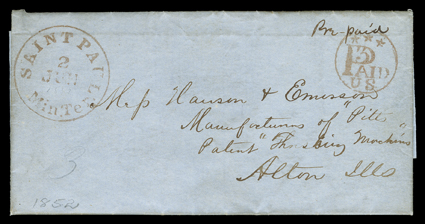 Pre-paid
SAINT PAUL
2
JUN
MinTer
3
PAID
U.S.
Mess Hanson & Emerson
Manufacturers of "Pitts
Patent" Thrashing Machine
Alton Ills
1852